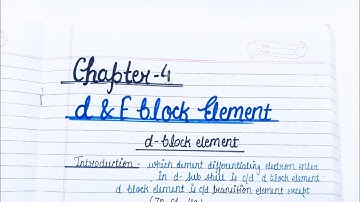 Chapter-4
d & F block Element
d-block element
Introduction - which element differentiating electron enter
in d- sub shell is c/d d block element.
d block element is c/d transition element except